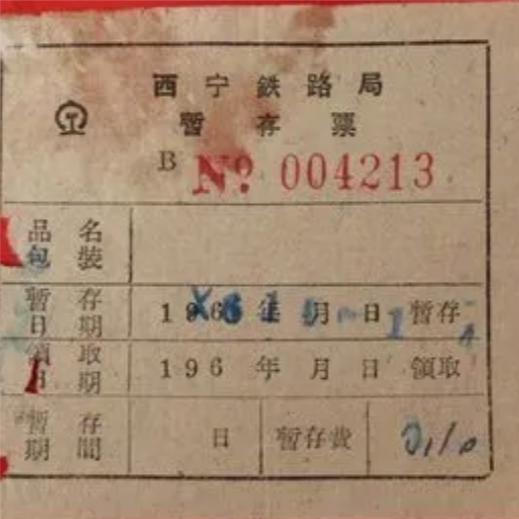 西宁鉄路局
暫存票
B No. 004213
品名
包裝
暫存
日期
196 年 月 日 暫存
領取
日期
196 年 月 日 領取
暫存
期間
日
暫存費
0.10